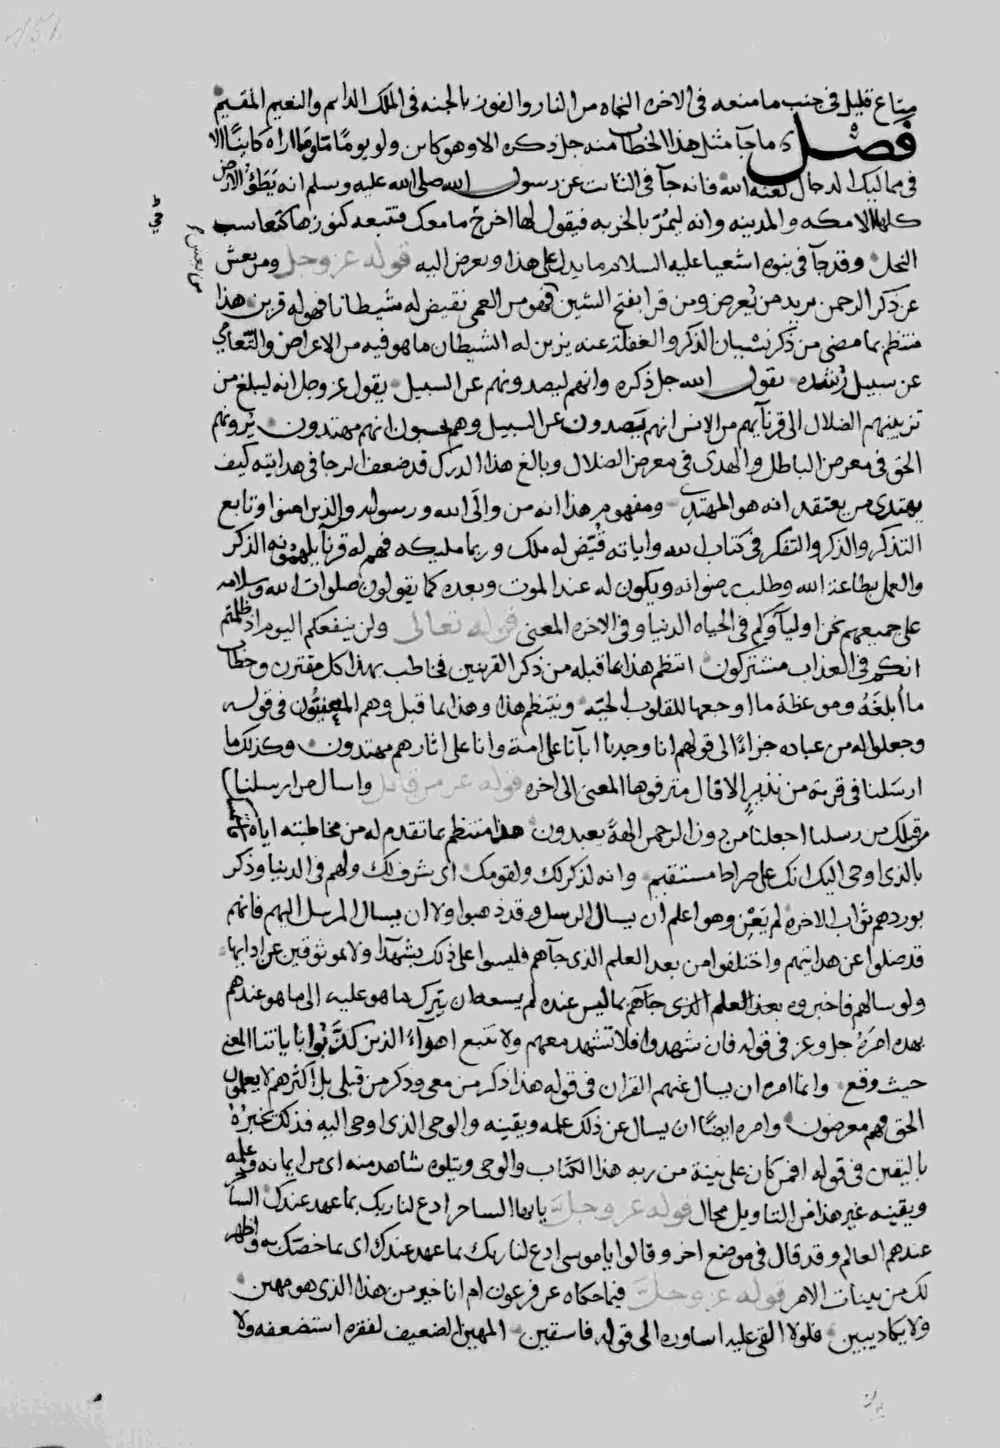 151
متاع قليل في جنب ما منعه في الاخره النجاه من النار والفوز بالجنه في الملك الدايم والنعيم المقيم
فصل ما جآ مثل هذا الخطاب منه جل ذكره الا وهو كاين ولو يومًا ما اراه كاينًا الا
في مماليك الدجال لعنه الله فانه جآ في الثابت عن رسول الله صلى الله عليه وسلم انه يَطَؤُ الارض
كلها الا مكه والمدينه وانه ليمُرّ بالخربه فيقول لها اخرجي ما معك فتتبعه كنوزها كيعاسيب
النحل وقد جآ في نبوه اشعيا عليه السلام ما يدل على هذا ويعرض اليه قوله عز وجل ومن يعش
عن ذكر الرحمن يريد من يُعرض ومن قرا بفتح الشين فهو من العمى نقيض له شيطانا فهو له قرين هذا
منتظم بما مضى من ذكر نسيان الذكر والغفلة عنه يزين له الشيطان ما هو فيه من الاعراض والتّعامي
عن سبيل رُشده يقول الله جل ذكره وانهم ليصدونهم عن السبيل يقول عز وجل انه ليبلغ من
تزيينهم الضلال الى قرنآيهم من الانس انهم يَصدون عن السبيل وهم يحسبون انهم مهتدون يُرونهم
الحق في معرض الباطل والهدى في معرض الضلال وبالغ هذا الدرك قد ضعف الرجا في هدايته كيف
يهتدي من يعتقد انه هو المهتدِي ومفهوم هذا انه من والَى الله ورسوله والذين امنوا وتابع
التذكر والذكر والتفكر في كتاب الله واياته قُيّض له ملك وربما مليكه فهم له قرنآ يلهمونه الذكر
والعمل بطاعة الله وطلب رضوانه ويكون له عند الموت وبعده كما يقولون صلوات الله وسلامه
على جميعهم نحن اوليآوكم في الحياه الدنيا وفي الاخره المعنى قوله تعالى ولن ينفعكم اليوم اذ ظلمتم
انكم في العذاب مشتركون انتظم هذا بما قبله من ذكر القرينين فخاطب بهذا كل مقترن وخطاب
ما أبلغَهُ وموعظة ما اوجعها للقلوب الحيّه وينتظم هذا وهذا بما قبل وهم المعنيُّون في قوله
وجعلوا له من عباده جزاءً الى قولهم انا وجدنا ابآنا على امة وانا على اثارهم مهتدون وكذلك ما
ارسَلنا في قرية من نذير الا قال مترفوها المعنى الى اخره قوله عز من قائل واسال من ارسلنا
من قبلك من رسلنا اجعلنا من دون الرحمن الهةً يعبدون هذا منتظم بما تقدم له من مخاطبته اياه
بالذي اوحى اليك انك على صراط مستقيم وانه لذكر لك ولقومك اي شرف لك ولهم في الدنيا وذكر
يوردهم ثواب الاخره لم يَعْنِ وهو اعلم ان يسال الرسل وقد ذهبوا ولا ان يسال المرسل اليهم فانهم
قد ضلوا عن هدايتهم واختلفوا من بعد العلم الذي جآهم فليسوا على ذلك بشهدآ ولا بموثوقين عن ادايها
ولو سالهم فاخبروه بغير العلم الذي جآهم بما ليس عنده لم يسعه ان يترك ما هو عليه الى ما هو عندهم
بهذه امرَهُ جل وعز في قوله فان شهدوا فلا تشهد معهم ولا تتبع اهوآءَ الذين كذَّبوا باياتنا المعنى
حيث وقع وانما امره ان يسال عنهم القران في قوله هذا ذكر من معي وذكر من قبلي بل اكثرهم لا يعلمون
الحق فهم معرضون وامره ايضًا ان يسال عن ذلك علمه ويقينه والوحي الذي اوحي اليه فذلك يخبرُهُ
باليقين في قوله افمن كان على بينة من ربه هذا الكتاب والوحي ويتلوه شاهد منه اي من ايمانه وعلمه
ويقينه غير هذا من التاويل محال قوله عز وجل يا ايها الساحر ادع لنا ربك بما عهد عندك الساحر
عندهم العالم وقد قال في موضع اخر وقالوا يا موسى ادع لنا ربك بما عهد عندك اي بما خصّك به واظهر
لك من بينات الامر قوله عز وجل فيما حكاه عن فرعون ام انا خير من هذا الذي هو مهين
ولا يكاد يبين فلولا القي عليه اساوره الى قوله فاسقين المهين الضعيف لفقره استضعفه ولا